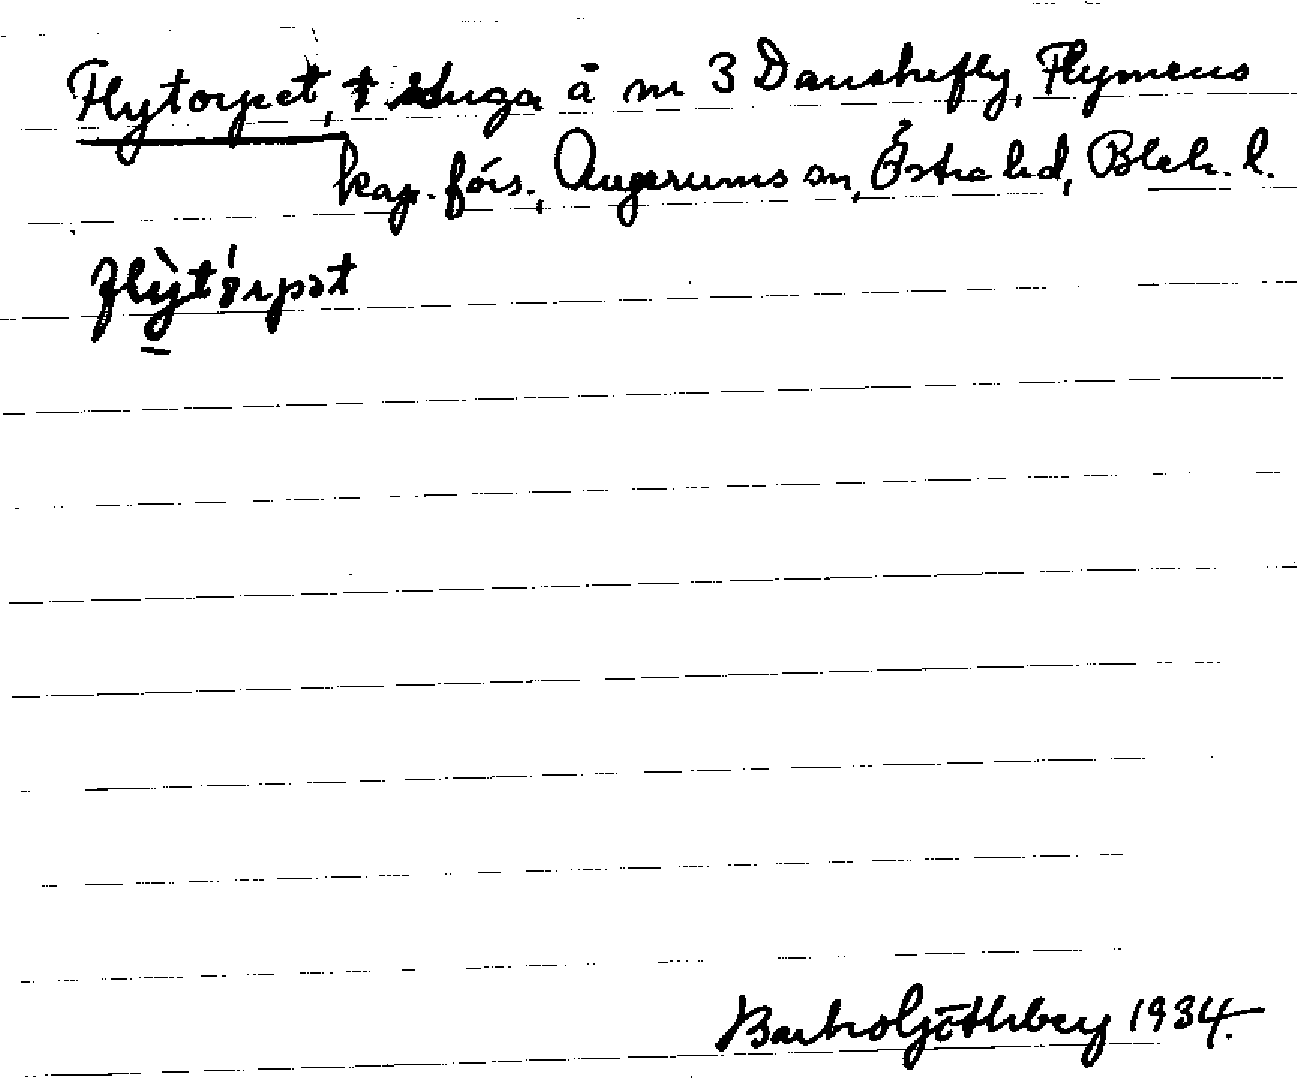 Flytorpet, † stuga å nr 3 Danskefly, Flymens
kap. förs., Augerums sn, Östra hd, Blek. l.
flỳtórpət
Barbro Göthberg 1934.